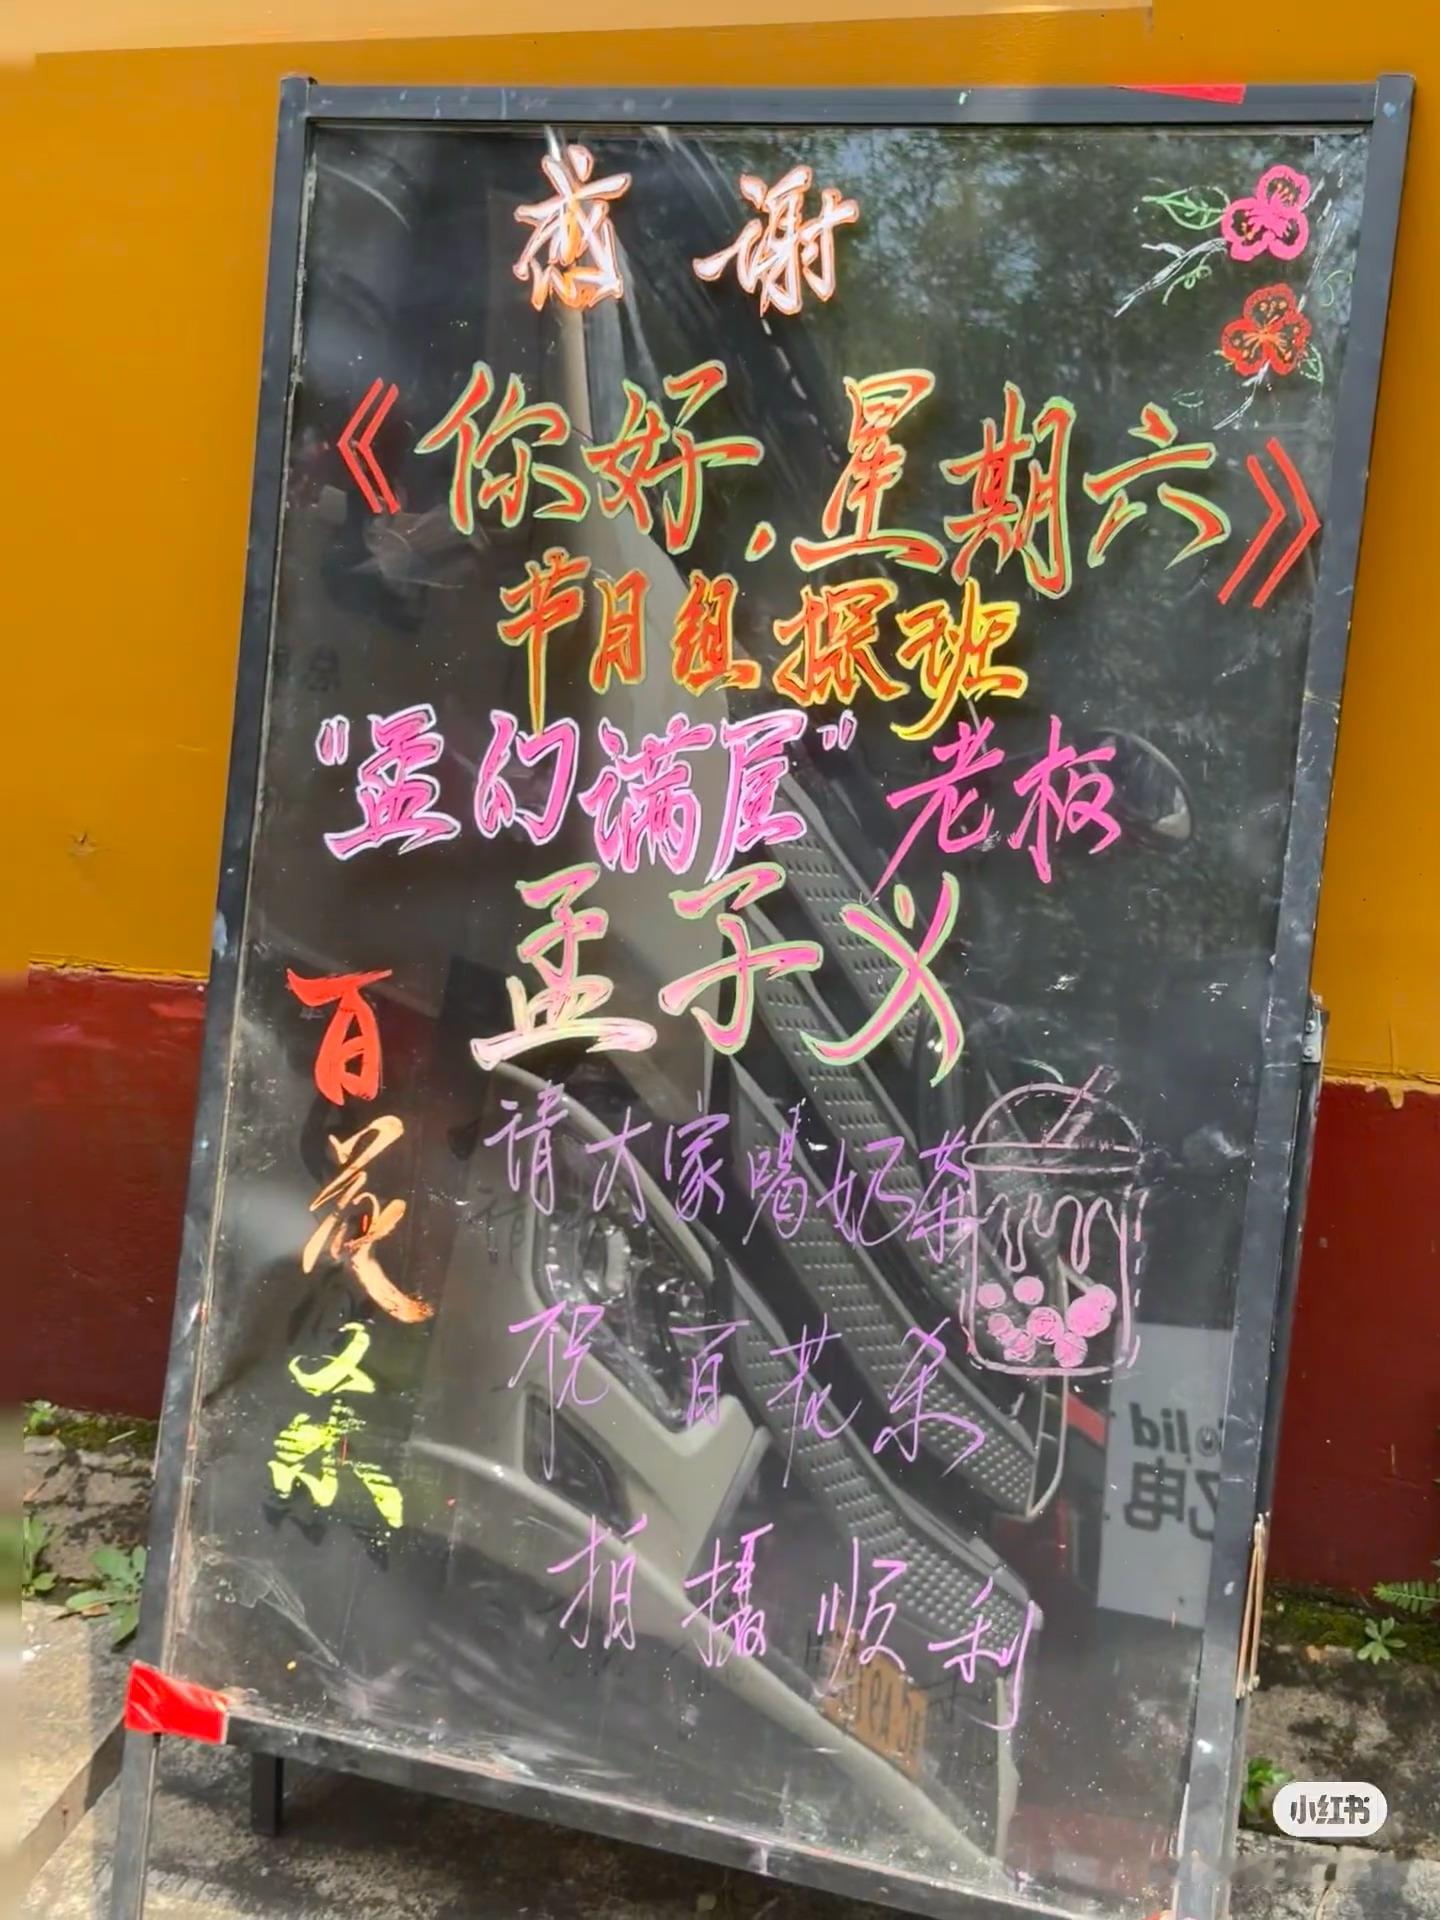 感谢
《你好.星期六》
节目组探班
"孟幻满屋"老板
孟子义
百花杀
请大家喝奶茶
祝百花杀
拍摄顺利
小红书